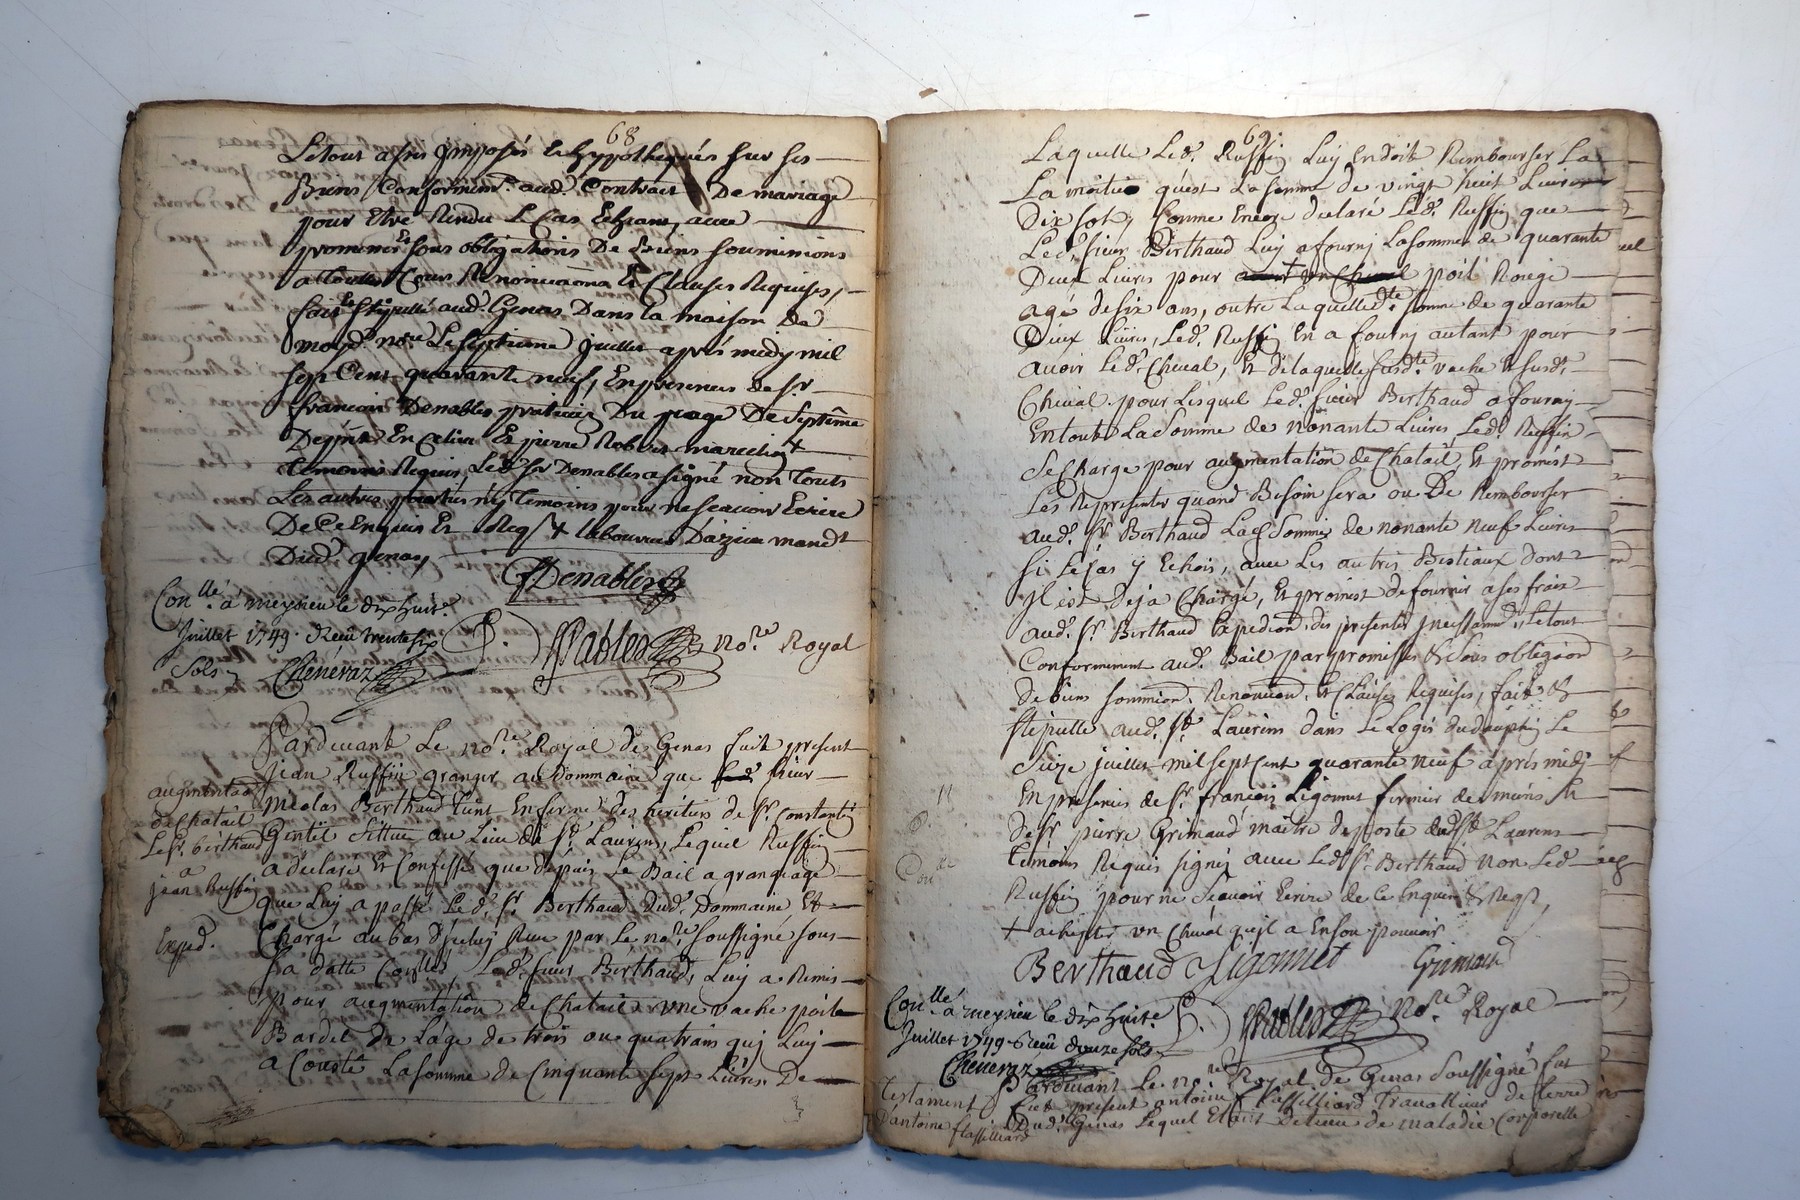 68
Letout assis Imposés & hypothequés sur ses
Biens Conformemt. aud. Contract De mariage
pour Etre Rendu Le Cas Echeant avec
promesses Et sous obligations De Biens soumissions
a Toutes Cours Renonciaõns Et Clauses Requises,
fait Et stipullé aud. Genas Dans la maison De
moyd. nore. Le septieme juillet après midy mil
sept Cent quarante neuf, En presences de sr.
francois Denables praticien Du De Septême
Et pierre Robert +
temoins Requis, Led. sr. Denables a signé non Touts
Les autres parties ny temoins pour ne scavoir Ecrire
De Ce Enquis Et Reqs + laboureur D'azieu mandt.
Dud. genas,
FDenables
Conllé. á meyzieu le dix huit.
Juillet 1749. Reçu trente six
sols
Cheneraz
Nore. Royal
Pardevant Le nore. Royal de Genas fut present
jean Ruffin granger au Dommaine que sieur
Nicolas Berthaud Tient En ferme des héritiers de sr. Constantin
Gentil Sittué au Lieu de st. Laurens, Lequel Ruffin
a déclaré Et Confessé que depuis Le Bail a grangeage
que Luy a passé Led. sr. Berthaud dud. Dommaine Et
Chargé au bas d'jceluy Reçu par Le nore. soussigné sous
sa datte Conllé, Led. sieur Berthaud, Luy a Remis
pour augmentation de Chatail une vache poile
Bardel de L'âge de trois ou quatr'ans quj Luy
a Couté La somme de Cinquante sept Livres De
augmentaõn
de chatail
Le sr. bérthaud
a
jean Ruffin
Exped.
69.
Laquelle Led. Ruffin Luy En doit Rembourser La
La moitié qu'est La somme de vingt huit Livres
Dix sols, Comme Encore déclaré Led. Ruffin que
Led. sieur Berthaud Luy a fournj La somme de quarante
Deux Livres pour poil Rouge
agé de six ans, outre Laquelle dte. somme de quarante
Deux Livres, Led. Ruffin En a fournj autant pour
avoir Led. Cheval, Et de laquelle susdte. vache Et susd.
Cheval pour Lesquel Led. sieur Berthaud a fournj
En toute La Somme de nonante Livres Led. Ruffin
Se Charge pour augmentation de Chatail Et promest
Les Representer quand Besoin sera ou De Rembourser
aud. sr. Berthaud La Somme de nonante neuf Livres
si Le Cas y Echoit, avec Les autres Bestiaux dont
jl est déjà Chargé, Et promest de fournir a ses frais
aud. sr. Berthaud Expedion. des presentes Letout
Conformement aud. Bail par promesses & sous obligaõn
de biens soumion. Renonciaõn. Et Clauses Requises, fait &
stipullé aud. st. Laurens dans Le Logis du dauphin Le
Seize juillet mil sept Cent quarante neuf après midj
En presences de sr. françois Ligonnet fermier de &
de sr. pierre Grimaud maître de poste dud. st. Laurens
Temoins Requis signés avec Led. sr. Berthaud non Led.
Ruffin pour ne sçavoir Ecrire de Ce Enquis & Reqs,
+ achepter un Cheval qu'jl a En son pouvoir
Berthaud Ligonnet Grimaud
Conllé. á meyzieu le dix huit.
Juillet 1749. Reçu douze sols
Cheneraz
Nore. Royal
Pardevant Le nore. Royal de Genas soussigné fut
fut present antoine flassilliard Travailleur de terre
Dud. Genas Lequel Etant Detenu de maladie Corporelle
Testament
d'antoine flassilliard